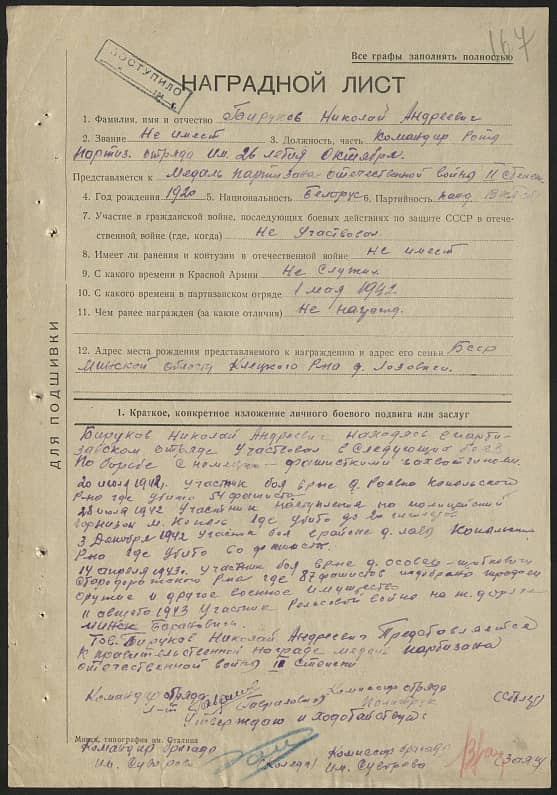 167
Все графы заполнять полностью
ПОСТУПИЛО
НАГРАДНОЙ ЛИСТ
1. Фамилия, имя и отчество Бируков Николай Андреевич
2. Звание Не имеет 3. Должность, часть Командир роты
партиз. отряда им. 26 летия Октября.
Представляется к Медаль партизана отечественной войны II степен
4. Год рождения 1920 5. Национальность Белорус 6. Партийность канд.
7. Участие в гражданской войне, последующих боевых действиях по защите СССР в отече-
ственной войне (где, когда) Не участвовал
8. Имеет ли ранения и контузии в отечественной войне не имеет
9. С какого времени в Красной Армии Не служил
10. С какого времени в партизанском отряде 1 мая 1942
11. Чем ранее награжден (за какие отличия) Не награжд.
12. Адрес места рождения представляемого к награждению и адрес его семьи Бсср
Минской области Клецкого р-на д.
ДЛЯ ПОДШИВКИ
1. Краткое, конкретное изложение личного боевого подвига или заслуг
Бируков Николай Андреевич находясь в парти-
занском отряде участвовал в следующих боях
по борьбе с немецко-фашисткими захватчиками.
20 июля 1942г. участник боя в р-не д. Раевка Копыльского
р-на где убито 54 фашиста
28 июля 1942 участник наступления на полицейский
гарнизон м. Копыль где убито до 20
3 Декабря 1942 участник боя в районе д. Лавы Копыльск
р-на где убито 60 фашист.
14 апреля 1943г. участник боя в р-не д. осовец
Стародорожского р-на где 87 фашистов
оружие и другое военное имущество
11 августа 1943 участие Рельсовой войне на ж. дороге
Минск Барановичи.
Тов. Бируков Николай Андреевич Представляется
к правительственной награде медаль партизана
отечественной войны II степени
Командир отряда Комиссар отряда
Утверждаю и ходотайствую
Минск, типография им. Сталина
Командир бригады Комиссар бригады
им. Суворова им. Суворова